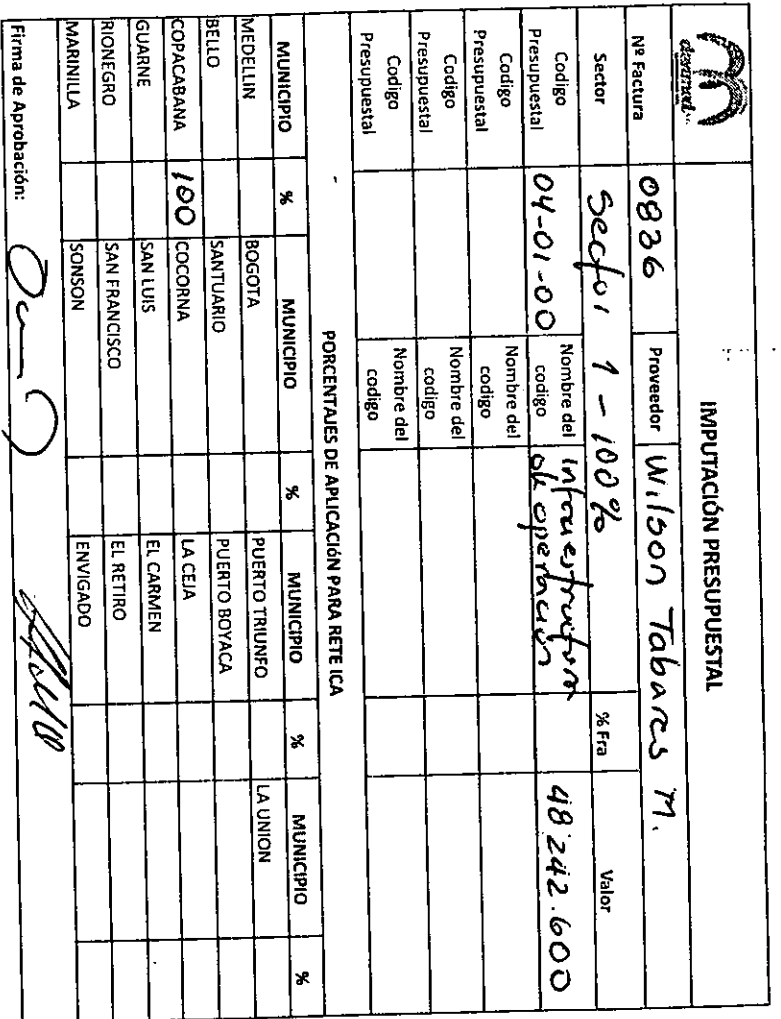 devimed
IMPUTACIÓN PRESUPUESTAL
Nº Factura 0836 Proveedor Wilson Tabares M.
Sector Sector 1 - 100% % Fra Valor
Codigo Presupuestal 04-01-00 Nombre del codigo Infraestructura de operación 48'242.600
Codigo Presupuestal Nombre del codigo
Codigo Presupuestal Nombre del codigo
Codigo Presupuestal Nombre del codigo
PORCENTAJES DE APLICACIÓN PARA RETE ICA
MUNICIPIO % MUNICIPIO % MUNICIPIO % MUNICIPIO %
MEDELLIN BOGOTA PUERTO TRIUNFO LA UNION
BELLO SANTUARIO PUERTO BOYACA
COPACABANA 100 COCORNA LA CEJA
GUARNE SAN LUIS EL CARMEN
RIONEGRO SAN FRANCISCO EL RETIRO
MARINILLA SONSON ENVIGADO
Firma de Aprobación: